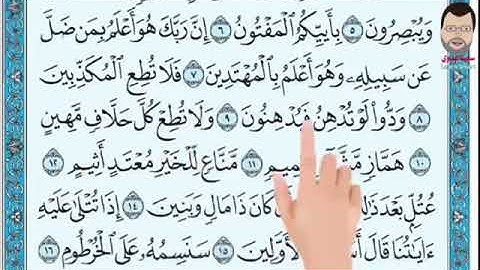 وَيُبْصِرُونَ ٥ بِأَييِّكُمُ ٱلْمَفْتُونُ ٦ إِنَّ رَبَّكَ هُوَ أَعْلَمُ بِمَن ضَلَّ
عَن سَبِيلِهِۦ وَهُوَ أَعْلَمُ بِٱلْمُهْتَدِينَ ٧ فَلَا تُطِعِ ٱلْمُكَذِّبِينَ
٨ وَدُّوا۟ لَوْ تُدْهِنُ فَيُدْهِنُونَ ٩ وَلَا تُطِعْ كُلَّ حَلَّافٍ مَّهِينٍ
١٠ هَمَّازٍ ١١ مَّنَّاعٍ لِّلْخَيْرِ مُعْتَدٍ أَثِيمٍ ١٢
عُتُلٍّۭ بَعْدَ كَانَ ذَا مَالٍ وَبَنِينَ ١٤ إِذَا تُتْلَىٰ عَلَيْهِ
ءَايَـٰتُنَا قَالَ ٱلْأَوَّلِينَ ١٥ سَنَسِمُهُۥ عَلَى ٱلْخُرْطُومِ ١٦